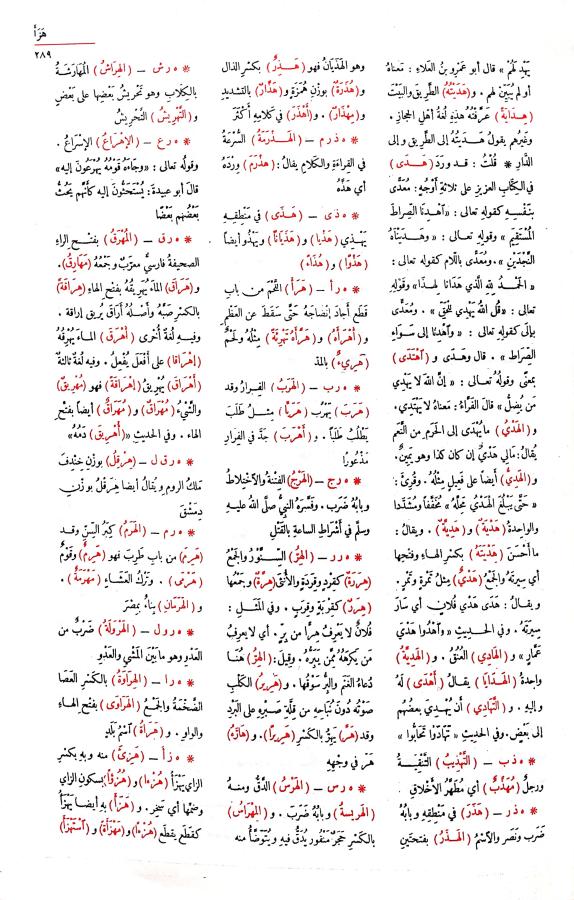 هَزَأَ
٢٨٩
يَهْدِ لَهُمْ » قال أبو عَمْرِو بنُ العَلاءِ : معناهُ
أو لم يُبَيِّنْ لهم . و(هَدَيْتُهُ) الطَّرِيقَ والبَيْتَ
(هِدَايَةً) عَرَّفْتُهُ هذِهِ لُغَةُ أَهْلِ الحِجازِ .
وغَيْرُهم يقولُ هَدَيْتُهُ إلى الطَّرِيقِ وإلى
الدَّارِ * قُلْتُ : قد وَرَدَ (هَدَى)
في الكِتَابِ العزيزِ على ثلاثةِ أَوْجُهٍ : مُعَدًّى
بنَفْسِهِ كقولِهِ تعالى : «اهْدِنَا الصِّراطَ
المُسْتَقِيمَ » وقولِهِ تعالى : «وهَدَيْنَاهُ
النَّجْدَيْنِ » . ومُعَدًّى باللَّامِ كقوله تعالى :
«الحَمْدُ للهِ الَّذِي هَدَانَا لهذا» وقَوْلِهِ
تعالى : «قُلِ اللهُ يَهْدِي لِلْحَقِّ » . ومُعَدًّى
بإلى كقولِهِ تعالى : « واهْدِنَا إلى سَوَاءِ
الصِّرَاطِ » . قال وهَدَى و (اهْتَدَى)
بمعنًى وقولُهُ تعالى : « إنَّ اللهَ لا يَهْدِي
مَنْ يُضِلُّ » قالَ الفَرَّاءُ : معناهُ لا يَهْتَدِي .
و(الهَدْيُ) ما يُهْدَى إلى الحَرَمِ من النَّعَمِ
يُقالُ : مالي هَدْيٌ إن كان كذا وهو يمينٌ .
و(الهَدِيُّ) أيضاً على فَعِيلٍ مِثْلُهُ . وقُرِئَ :
« حَتَّى يَبْلُغَ الهَدْيُ مَحِلَّهُ » مُخَفَّفاً ومُشَدَّدا
والواحِدَةُ (هَدْيَةٌ) و (هَدِيَّةٌ) . ويقال :
ما أَحْسَنَ (هِدْيَتَهُ) بكسرِ الهاءِ وفتحِها
أي سِيرَتَهُ والجمْعُ (هَدْيٌ) مِثْلُ تَمْرَةٍ وتَمْرٍ .
ويقالُ : هَدَى هَدْيَ فُلانٍ أي سَارَ
سِيرَتَهُ . وفي الحديثِ « واهْدُوا هَدْيَ
عَمَّارٍ» و (الهادِي) العُنُقُ . و (الهَدِيَّةُ)
واحِدَةُ (الهَدَايَا) يقالُ (أَهْدَى) لَهُ
وإليهِ . و (التَّهَادِي) أَن يُهْدِيَ بعضُهم
إلى بَعْضٍ . وفي الحديثِ « تَهَادَوْا تَحَابُّوا »
* ه ذ ب – (التَّهْذِيبُ) التَّنْقِيَةُ
ورجلٌ (مُهَذَّبٌ) أي مُطَهَّرُ الأَخْلَاقِ
* ه ذ ر – (هَذَرَ) في مَنْطِقِهِ وبابُهُ
ضَرَب ونَصَر والاسْمُ (الهَذَرُ) بفتحتين
وهو الهَذَيَانُ فهو (هَذِرٌ) بكسرِ الذال
و(هُذَرَةٌ) بوَزْنِ هُمَزَةٍ و (هَذَّارٌ) بالتشديدِ
و(مِهْذَارٌ) . و(أَهْذَرَ) في كلامِهِ أكثَرَ
* ه ذ ر م – (الهَذْرَمَةُ) السُّرْعَةُ
في القراءَةِ والكلامِ يقالُ : (هَذْرَمَ) وِرْدَهُ
أي هَذَّهُ
* ه ذ ى – (هَذَى) في مَنطِقِهِ
يَهْذِي (هَذْيا) و (هَذَيَانًا) ويَهْذُو أيضاً
(هَذْوًا) و (هُذَاءً)
* ه ر أ – (هَرَأَ) اللَّحْمَ من بابِ
قَطَع أجادَ إنْضاجَهُ حتَّى سَقَطَ عن العَظْمِ
و (أَهْرَأَهُ) و (هَرَّأَهُ تَهْرِئَةً) مِثْلُهُ ولَحْمٌ
(هَرِيءٌ) بالمدّ
* ه ر ب – (الهَرَبُ) الفِرارُ وقد
(هَرَبَ) يَهْرُبُ (هَرَبًا) مِثْلُ طَلَبَ
يَطْلُبُ طَلَبًا . و (أَهْرَبَ) جَدَّ في الفِرَارِ
مَذْعُورًا
* ه ر ج – (الهَرْجُ) الفِتْنَةُ والاخْتِلاطُ
وبابُهُ ضَرَب . وفَسَّرَهُ النبيُّ صلَّى اللهُ عليه
وسلم في أَشْرَاطِ الساعةِ بالقَتْلِ
* ه ر ر – (الهِرُّ) السِّنَّوْرُ والجَمْعُ
(هِرَرَةٌ) كقِرْدٍ وقِرَدَةٍ والأُنْثَى (هِرَّةٌ) وجَمْعُها
(هِرَرٌ) كقِرْبَةٍ وقِرَبٍ . وفي المَثَلِ :
فُلانٌ لا يَعْرِفُ هِرًّا من بِرٍّ . أي لا يَعْرِفُ
من يَكرَهُهُ مِمَّنْ يَبَرُّهُ . وقيلَ : (الهِرُّ) هُنَا
دُعَاءُ الغَنَمِ والبِرُّ سَوْقُها . و(هَرِيرُ) الكَلْبِ
صَوْتُهُ دُونَ نُبَاحِهِ من قِلَّةِ صَبْرِهِ على البَرْدِ
وقد (هَرَّ) يَهِرُّ بالكَسْرِ (هَرِيرًا) . و(هَارَّهُ)
هَرَّ في وجْهِهِ
* ه ر س – (الهَرْسُ) الدَّقُّ ومنهُ
(الهَرِيسَةُ) وبابُهُ ضَرَبَ . و (المِهْرَاسُ)
بالكسرِ حَجَرٌ مَنْقُورٌ يُدَقُّ فيهِ ويُتَوَضَّأُ منه
* ه ر ش – (الهِرَاشُ) المُهَارَشَةُ
بالكِلَابِ وهو تَحْرِيشُ بَعْضِها على بَعْضٍ
و (التَّهْرِيشُ) التَّحْرِيشُ
* ه ر ع – (الإهْرَاعُ) الإسْرَاعُ .
وقولُه تعالى : «وجَاءَهُ قَوْمُهُ يُهْرَعُونَ إليه»
قال أبو عبيدةَ : يُسْتَحَثُّونَ إليه كأَنَّهم يَحُثُّ
بَعْضُهم بعضًا
* ه ر ق – (المُهْرَقُ) بفتحِ الراءِ
الصحيفةُ فارسيٌّ معرّبٌ وجَمْعُهُ (مَهَارِقُ) .
و(هَرَاقَ) الماءَ يُهَرِيقُهُ بفتحِ الهاءِ (هِرَاقَةً)
بالكسرِ صَبَّهُ وأَصْلُهُ أَرَاقَ يُرِيقُ إراقة .
وفيهِ لُغةٌ أُخْرى (أَهْرَقَ) الماءَ يُهْرِقُهُ
(إهْرَاقا) على أَفْعَلَ يُفْعِلُ . وفيه لُغَةٌ ثالِثَةٌ
(أَهْرَاقَ) يُهْرِيقُ (إهْرَاقَةً) فهو (مُهْرِيقٌ)
والشَّيْءُ (مُهْرَاقٌ) و (مُهَرَاقٌ) أيضا بفتح
الهاء . وفي الحديثِ «(أُهْرِيقَ) دَمُهُ»
* ه ر ق ل – (هِرَقْلُ) بوَزْنِ خِنْدِفٍ
مَلِكُ الرومِ ويُقالُ أيضا هِرَقْلُ بوَزْنِ
دِمَشْقَ
* ه ر م – (الهَرَمُ) كِبَرُ السِّنِّ وقد
(هَرِمَ) من بابِ طَرِبَ فهو (هَرِمٌ) وقَوْمٌ
(هَرْمَى) . وتَرْكُ العَشَاءِ (مَهْرَمَةٌ) .
و (الهَرَمانِ) بِنَاءٌ بِمِصْرَ
* ه ر و ل – (الهَرْوَلَةُ) ضَرْبٌ من
العَدْوِ وهو ما بَيْنَ المَشْيِ والعَدْوِ
* ه ر ا – (الهِرَاوَةُ) بالكَسْرِ العَصَا
الضَّخْمَةُ والجَمْعُ (الهَرَاوَى) بفتحِ الهاءِ
والواوِ . و (هَرَاةُ) اسْمُ بَلَدٍ
* ه ز أ – (هَزِئَ) منه وبِهِ بكسرِ
الزاي يَهْزَأُ (هُزْءا) و (هُزُؤًا) بسكونِ الزاي
وضمّها أي سَخِر . و (هَزَأَ) بِهِ أيضا يَهْزَأُ
كقَطَع يقطَع (هُزْءًا) و (مَهْزَأَةً) و (اسْتَهْزَأَ)